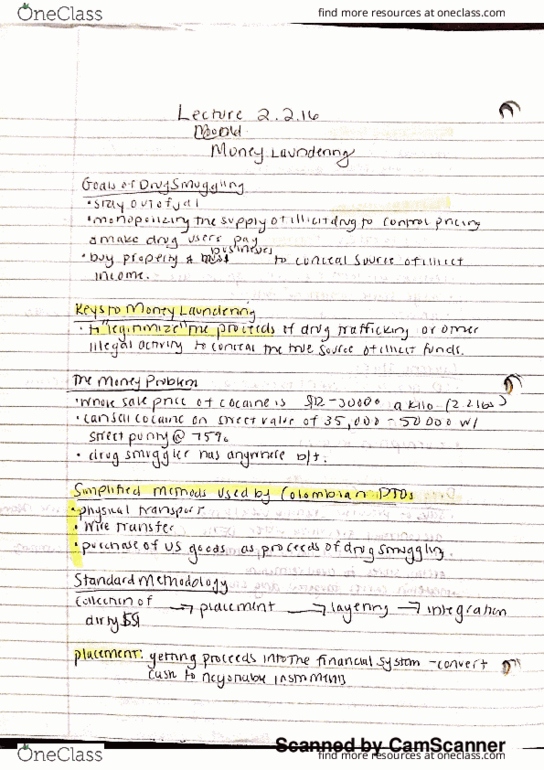 OneClass
find more resources at oneclass.com
Lecture 2.2.16
Money Laundering
Goals of Drug Smuggling
• stay out of jail
• monopolizing the supply of illicit drug to control pricing
& make drug users pay
businesses
• buy property & to conceal source of illicit
income.
Keys to Money Laundering
• to "legitimize" the proceeds of drug trafficking or other
illegal activity to conceal the true source of illicit funds.
The Money Problem
• whole sale price of cocaine is $12-30000 a kilo (2.2 lbs)
• can sell cocaine on street value of 35,000 - 50000 w/
street purity @ 75%
• drug smuggler has anywhere b/t.
Simplified methods used by Colombian DTOs
• physical transport
• wire transfer
• purchase of US goods as proceeds of drug smuggling.
Standard Methodology
collection of → placement → layering → integration
dirty $$
placement: getting proceeds into the financial system - convert
cash to negotiable instruments
Scanned by CamScanner
OneClass
find more resources at oneclass.com